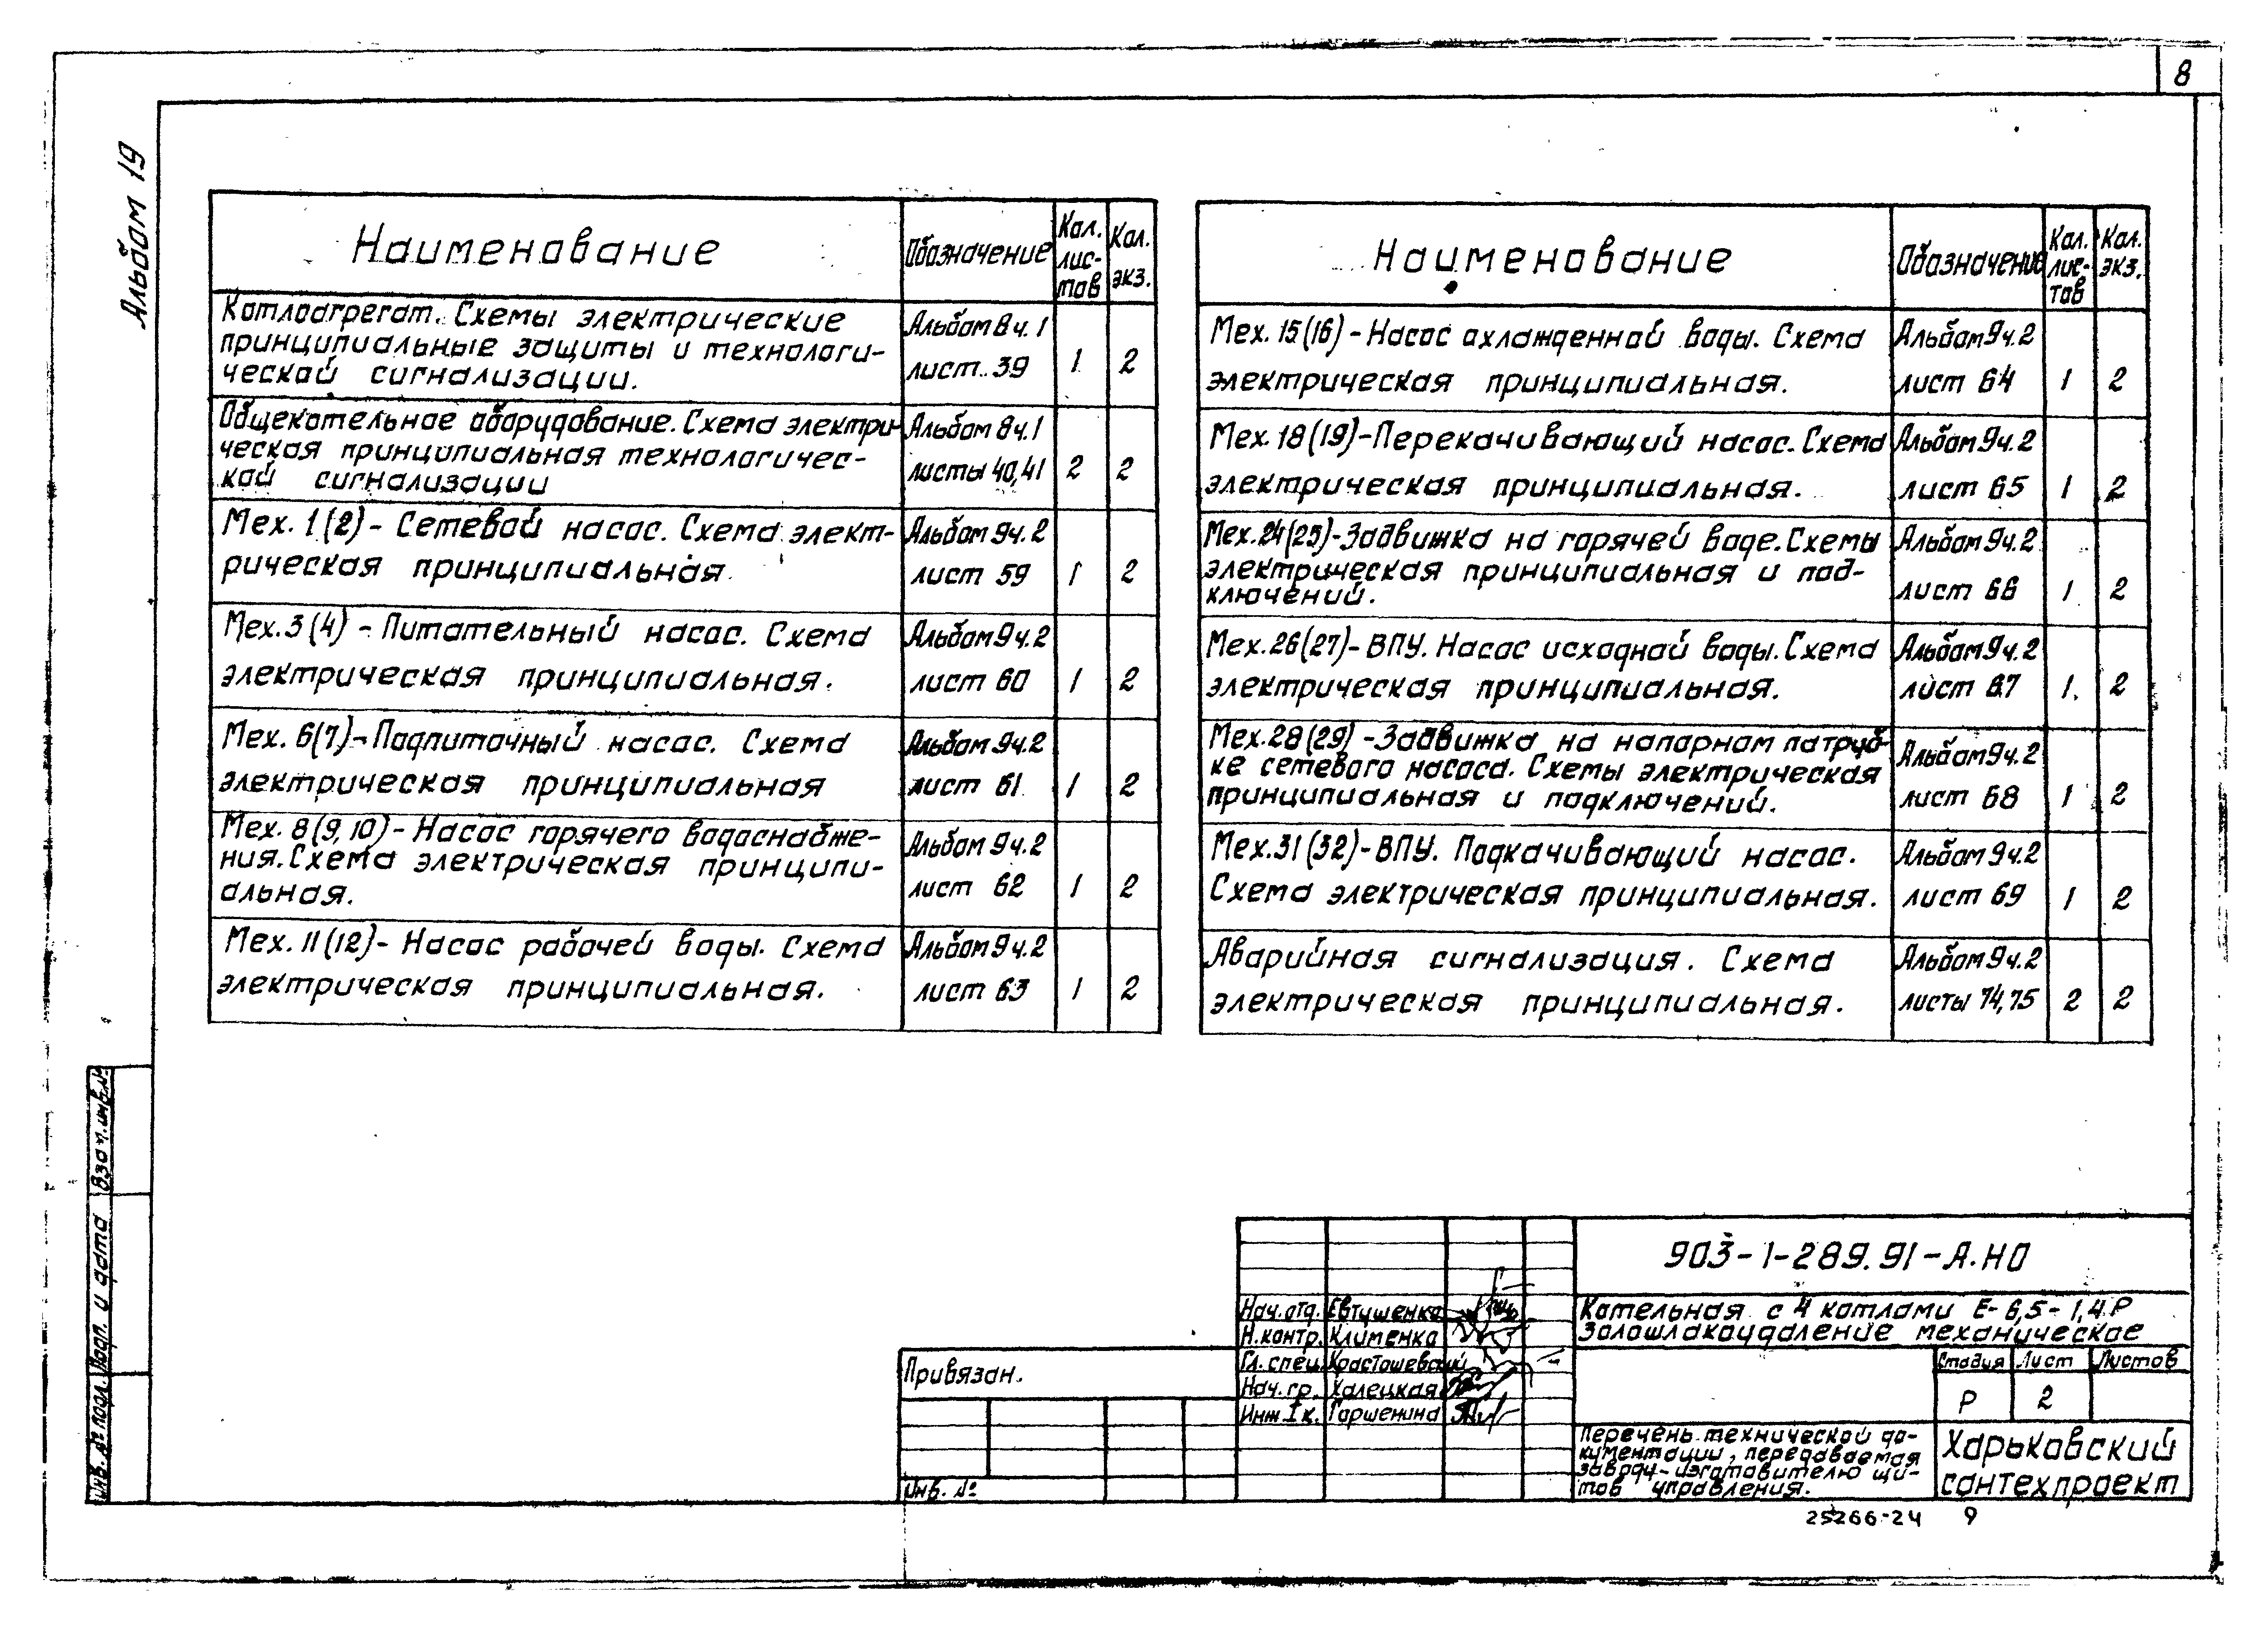 8
Альбом 19
Наименование
Обозначение
Кол.
лис-
тов
Кол.
экз.
Котлоагрегат. Схемы электрические
принципиальные защиты и технологи-
ческой сигнализации.
Альбом 8 ч. 1
лист 39
1
2
Общекотельное оборудование. Схема электри-
ческая принципиальная технологичес-
кой сигнализации
Альбом 8 ч. 1
листы 40,41
2
2
Мех. 1(2) - Сетевой насос. Схема элект-
рическая принципиальная
Альбом 9 ч. 2
лист 59
1
2
Мех. 3(4) - Питательный насос. Схема
электрическая принципиальная.
Альбом 9 ч. 2
лист 60
1
2
Мех. 6(7) - Подпиточный насос. Схема
электрическая принципиальная
Альбом 9 ч. 2
лист 61
1
2
Мех. 8(9,10) - Насос горячего водоснабже-
ния. Схема электрическая принципи-
альная.
Альбом 9 ч. 2
лист 62
1
2
Мех. 11(12) - Насос рабочей воды. Схема
электрическая принципиальная.
Альбом 9 ч. 2
лист 63
1
2
Наименование
Обозначение
Кол.
лис-
тов
Кол.
экз.
Мех. 15(16) - Насос охлажденной воды. Схема
электрическая принципиальная.
Альбом 9 ч. 2
лист 64
1
2
Мех. 18(19) - Перекачивающий насос. Схема
электрическая принципиальная.
Альбом 9 ч. 2
лист 65
1
2
Мех. 24(25) - Задвижка на горячей воде. Схемы
электрическая принципиальная и под-
ключений.
Альбом 9 ч. 2
лист 66
1
2
Мех. 26(27) - ВПУ. Насос исходной воды. Схема
электрическая принципиальная.
Альбом 9 ч. 2
лист 67
1
2
Мех. 28(29) - Задвижка на напорном патруб-
ке сетевого насоса. Схемы электрическая
принципиальная и подключений.
Альбом 9 ч. 2
лист 68
1
2
Мех. 31(32) - ВПУ. Подкачивающий насос.
Схема электрическая принципиальная.
Альбом 9 ч. 2
лист 69
1
2
Аварийная сигнализация. Схема
электрическая принципиальная.
Альбом 9 ч. 2
листы 74,75
2
2
Взам. инв. №
Подп. и дата
Инв. № подл.
Привязан.
Инв. №
Нач. отд. Евтушенко
Н. контр. Клименко
Гл. спец. Красташевский
Нач. гр. Халецкая
Инж. I к. Гаршенина
903-1-289.91-А.НО
Котельная с 4 котлами Е-6,5-1,4Р
Золошлакоудаление механическое
Стадия Лист Листов
Р 2
Перечень технической до-
кументации, передаваемая
заводу-изготовителю щи-
тов управления.
Харьковский
сантехпроект
25266-24 9